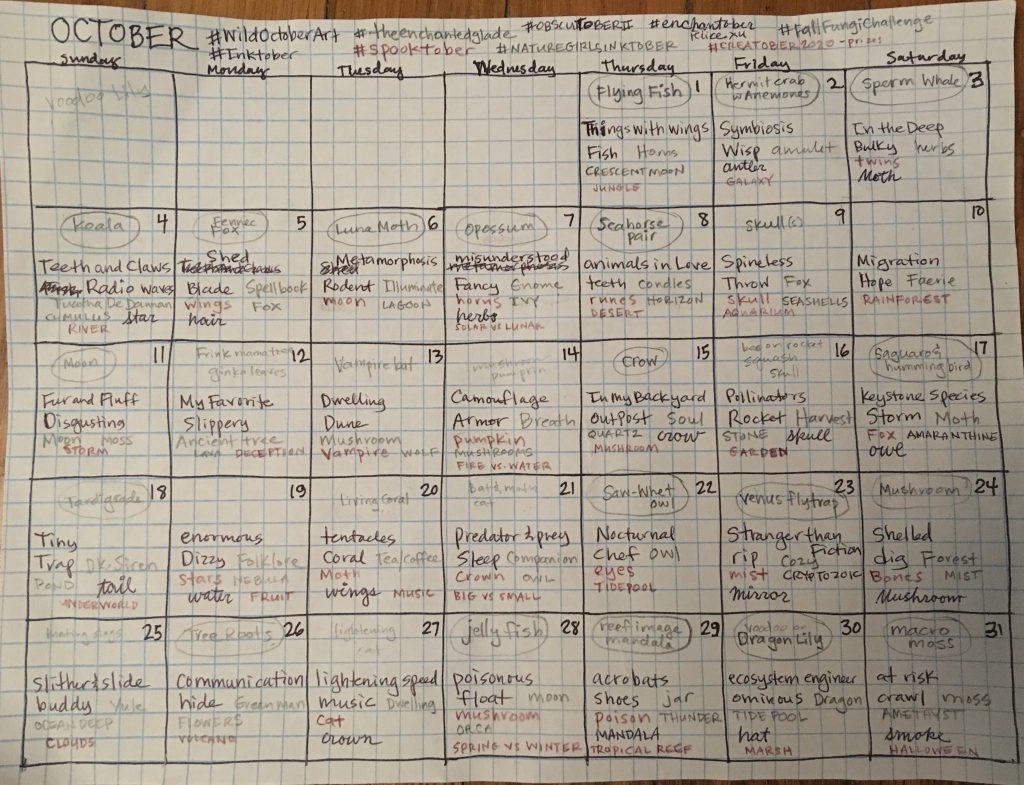 OCTOBER #WildOctoberArt #theenchantedglade #OBSCUTOBERII #enchantober #FallFungiChallenge
#Inktober #Spooktober #NATUREGIRLSINKTOBER #CREATOBER2020 -prizes
Sunday Monday Tuesday Wednesday Thursday Friday Saturday
Flying Fish 1
Things with wings
Fish Horns
CRESCENT MOON
JUNGLE
Hermit crab 2
w Anemones
Symbiosis
Wisp amulet
antler
GALAXY
Sperm Whale 3
In the Deep
Bulky herbs
twins
Moth
Koala 4
Teeth and Claws
Radio waves
Tuatha De Dannan
CUMULUS star
RIVER
Fennec 5
Fox
Shed
Blade Spellbook
wings Fox
hair
Luna Moth 6
Metamorphosis
Rodent Illuminate
moon LAGOON
opossum 7
misunderstood
metamorphosis
Fancy Gnome
horns IVY
herbs
SOLAR VS LUNAR
Seahorse 8
pair
animals in Love
teeth candles
runes HORIZON
DESERT
skull(s) 9
Spineless
Throw Fox
Skull SEASHELLS
AQUARIUM
10
Migration
Hope Faerie
RAINFOREST
Moon 11
Fur and Fluff
Disgusting
Moon moss
STORM
12
ginko leaves
My Favorite
Slippery
Ancient tree
LAVA DECEPTION
Vampire bat 13
Dwelling
Dune
Mushroom
Vampire WOLF
14
Camouflage
Armor Breath
pumpkin
MUSHROOMS
FIRE VS. WATER
crow 15
In my Backyard
outpost Soul
QUARTZ crow
MUSHROOM
16
squash
skull
Pollinators
Rocket Harvest
STONE skull
GARDEN
Saguaro & 17
humming bird
Keystone Species
Storm Moth
FOX AMARANTHINE
owl
Tardigrade 18
Tiny
Trap Dk. Siren
POND tail
UNDERWORLD
19
enormous
Dizzy Folklore
Stars NEBULA
water FRUIT
Living Coral 20
tentacles
Coral Tea/Coffee
Moth
wings MUSIC
21
cat
Predator & prey
Sleep Companion
Crown OWL
BIG VS SMALL
Saw-Whet 22
owl
Nocturnal
chef owl
eyes
TIDEPOOL
venus flytrap 23
Stranger than
Fiction
rip Cozy
mist CRYPTOZOIC
mirror
Mushroom 24
Shelled
dig Forest
Bones MIST
Mushroom
25
slither & slide
buddy Yule
OCEAN DEEP
CLOUDS
Tree Roots 26
communication
hide Green Man
FLOWERS
VOLCANO
lightening 27
cat
lightening speed
music Dwelling
cat
crown
jelly fish 28
poisonous
float moon
mushroom
ORCA
SPRING VS WINTER
reef image 29
mandala
acrobats
shoes jar
poison THUNDER
MANDALA
TROPICAL REEF
voodoo or 30
Dragon Lily
ecosystem engineer
ominous Dragon
TIDE POOL
hat
MARSH
macro 31
moss
at risk
crawl moss
AMETHYST
smoke
HALLOWEEN